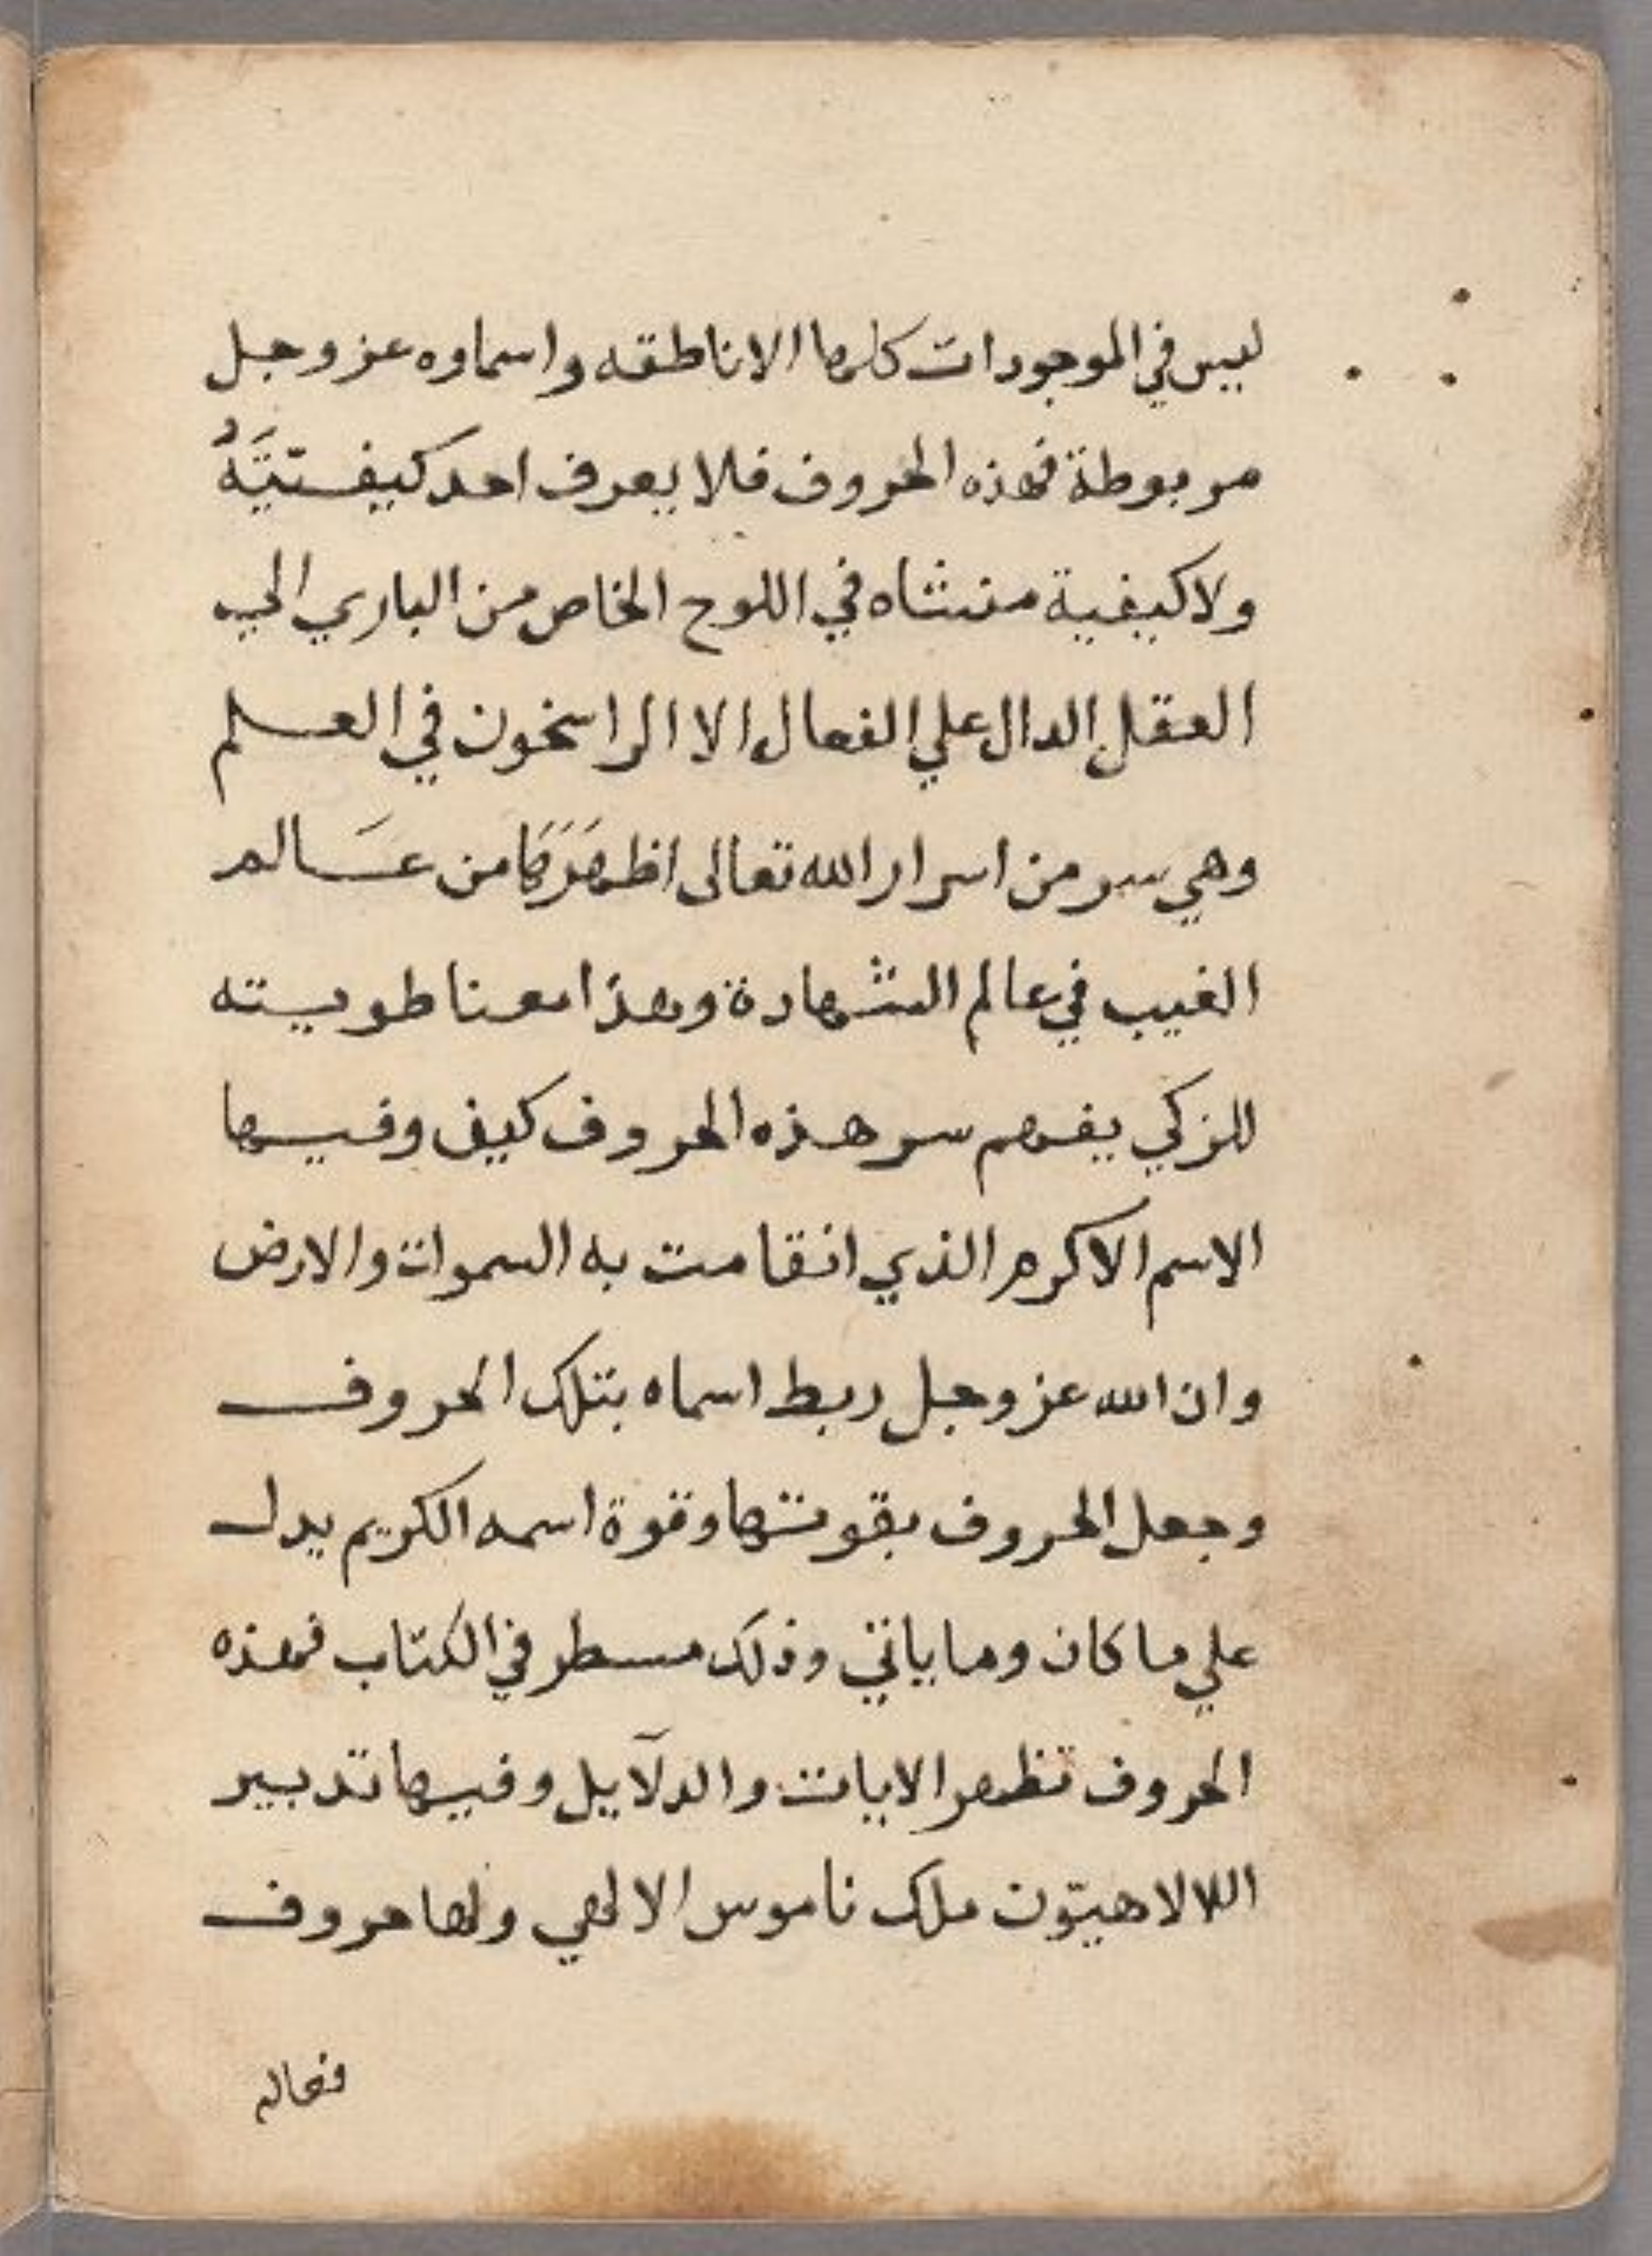 ليس في الموجودات كلها الا ناطقه واسماوه عز وجل
مربوطة فهذه الحروف فلا يعرف احد كيفيتَهُ
ولا كيفية منشاه في اللوح الخاص من الباري الي
العقل الدال علي الفعال الا الراسخون في العلم
وهي سر من اسرار الله تعالى اظهَرَهَا من عَالم
الغيب في عالم الشهادة وهذا معنا طويته
للزكي يفهم سر هذه الحروف كيف وفيها
الاسم الاكرم الذي انقامت به السموات والارض
وان الله عز وجل ربط اسماه بتلك الحروف
وجعل الحروف بقوتها وقوة اسمه الكريم يدل
علي ما كان وما ياتي وذلك مسطر في الكتاب فهذه
الحروف تظهر الايات والدلآيل وفيها تدبير
اللالاهيّون ملك ناموس الالهي ولها حروف
فعاله